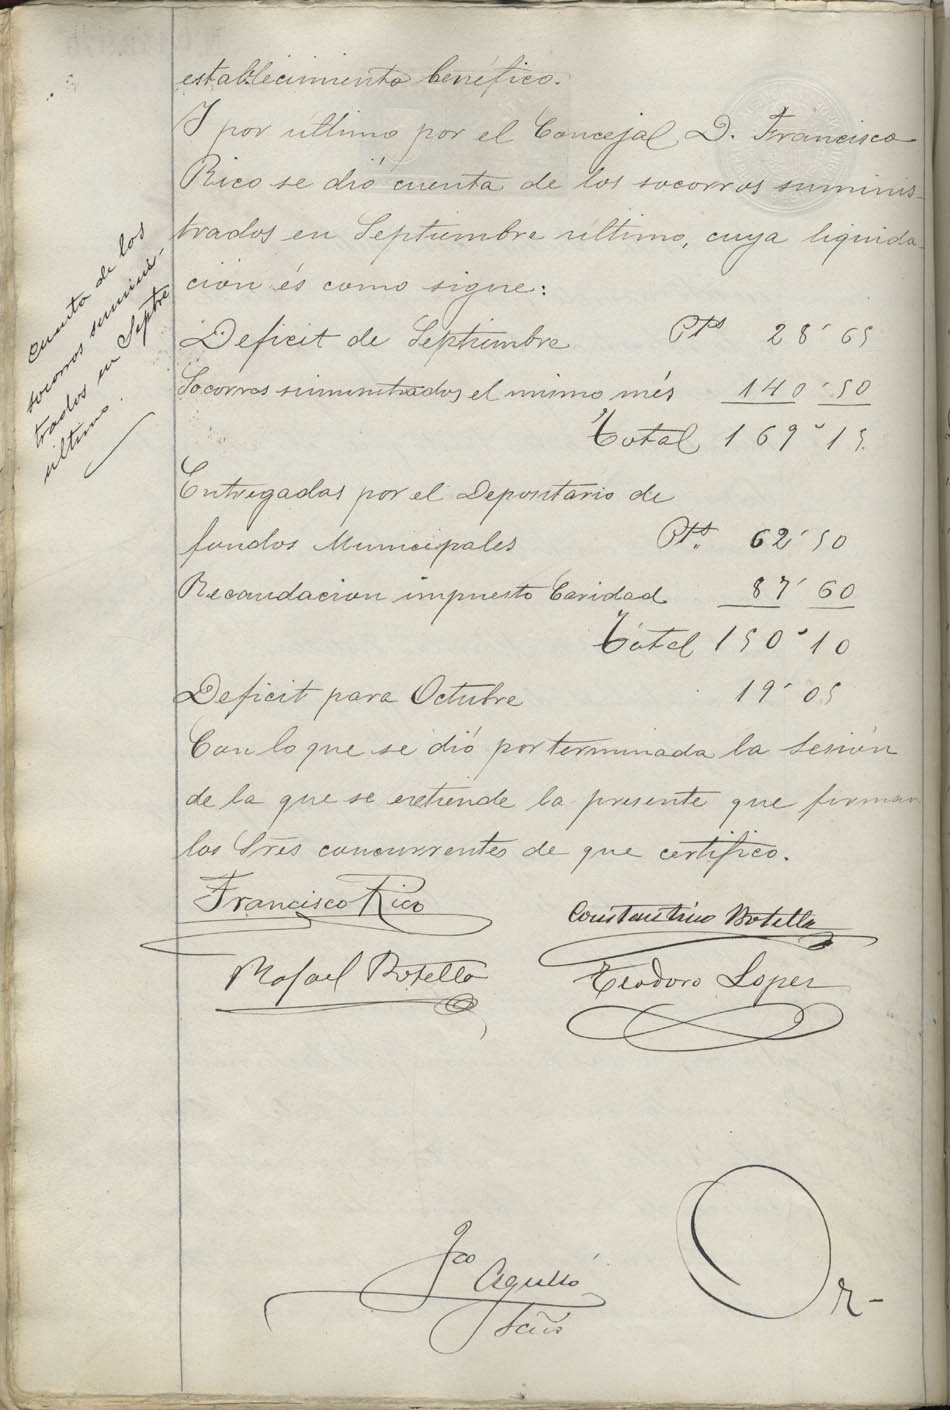 establecimiento benéfico.
Y por último por el Concejal D. Francisco
Rico se dió cuenta de los socorros suminis-
trados en Septiembre último, cuya liquida-
cion és como sigue:
cuenta de los
socorros suminis-
trados en Septbre
último.
Deficit de Septiembre Pts 28'65
Socorros suministrados el mismo més 140'50
Total 169'15
Entregadas por el Depositario de
fondos Municipales Pts. 62'50
Recaudacion impuesto Caridad 87'60
Total 150'10
Deficit para Octubre 19'05
Con lo que se dió por terminada la Sesión
de la que se extiende la presente que firman
los Sres concurrentes de que certifico.
Francisco Rico Constantino Botella
Rafael Botella Teodoro Lopez
Fco Agulló
Srio
Or-